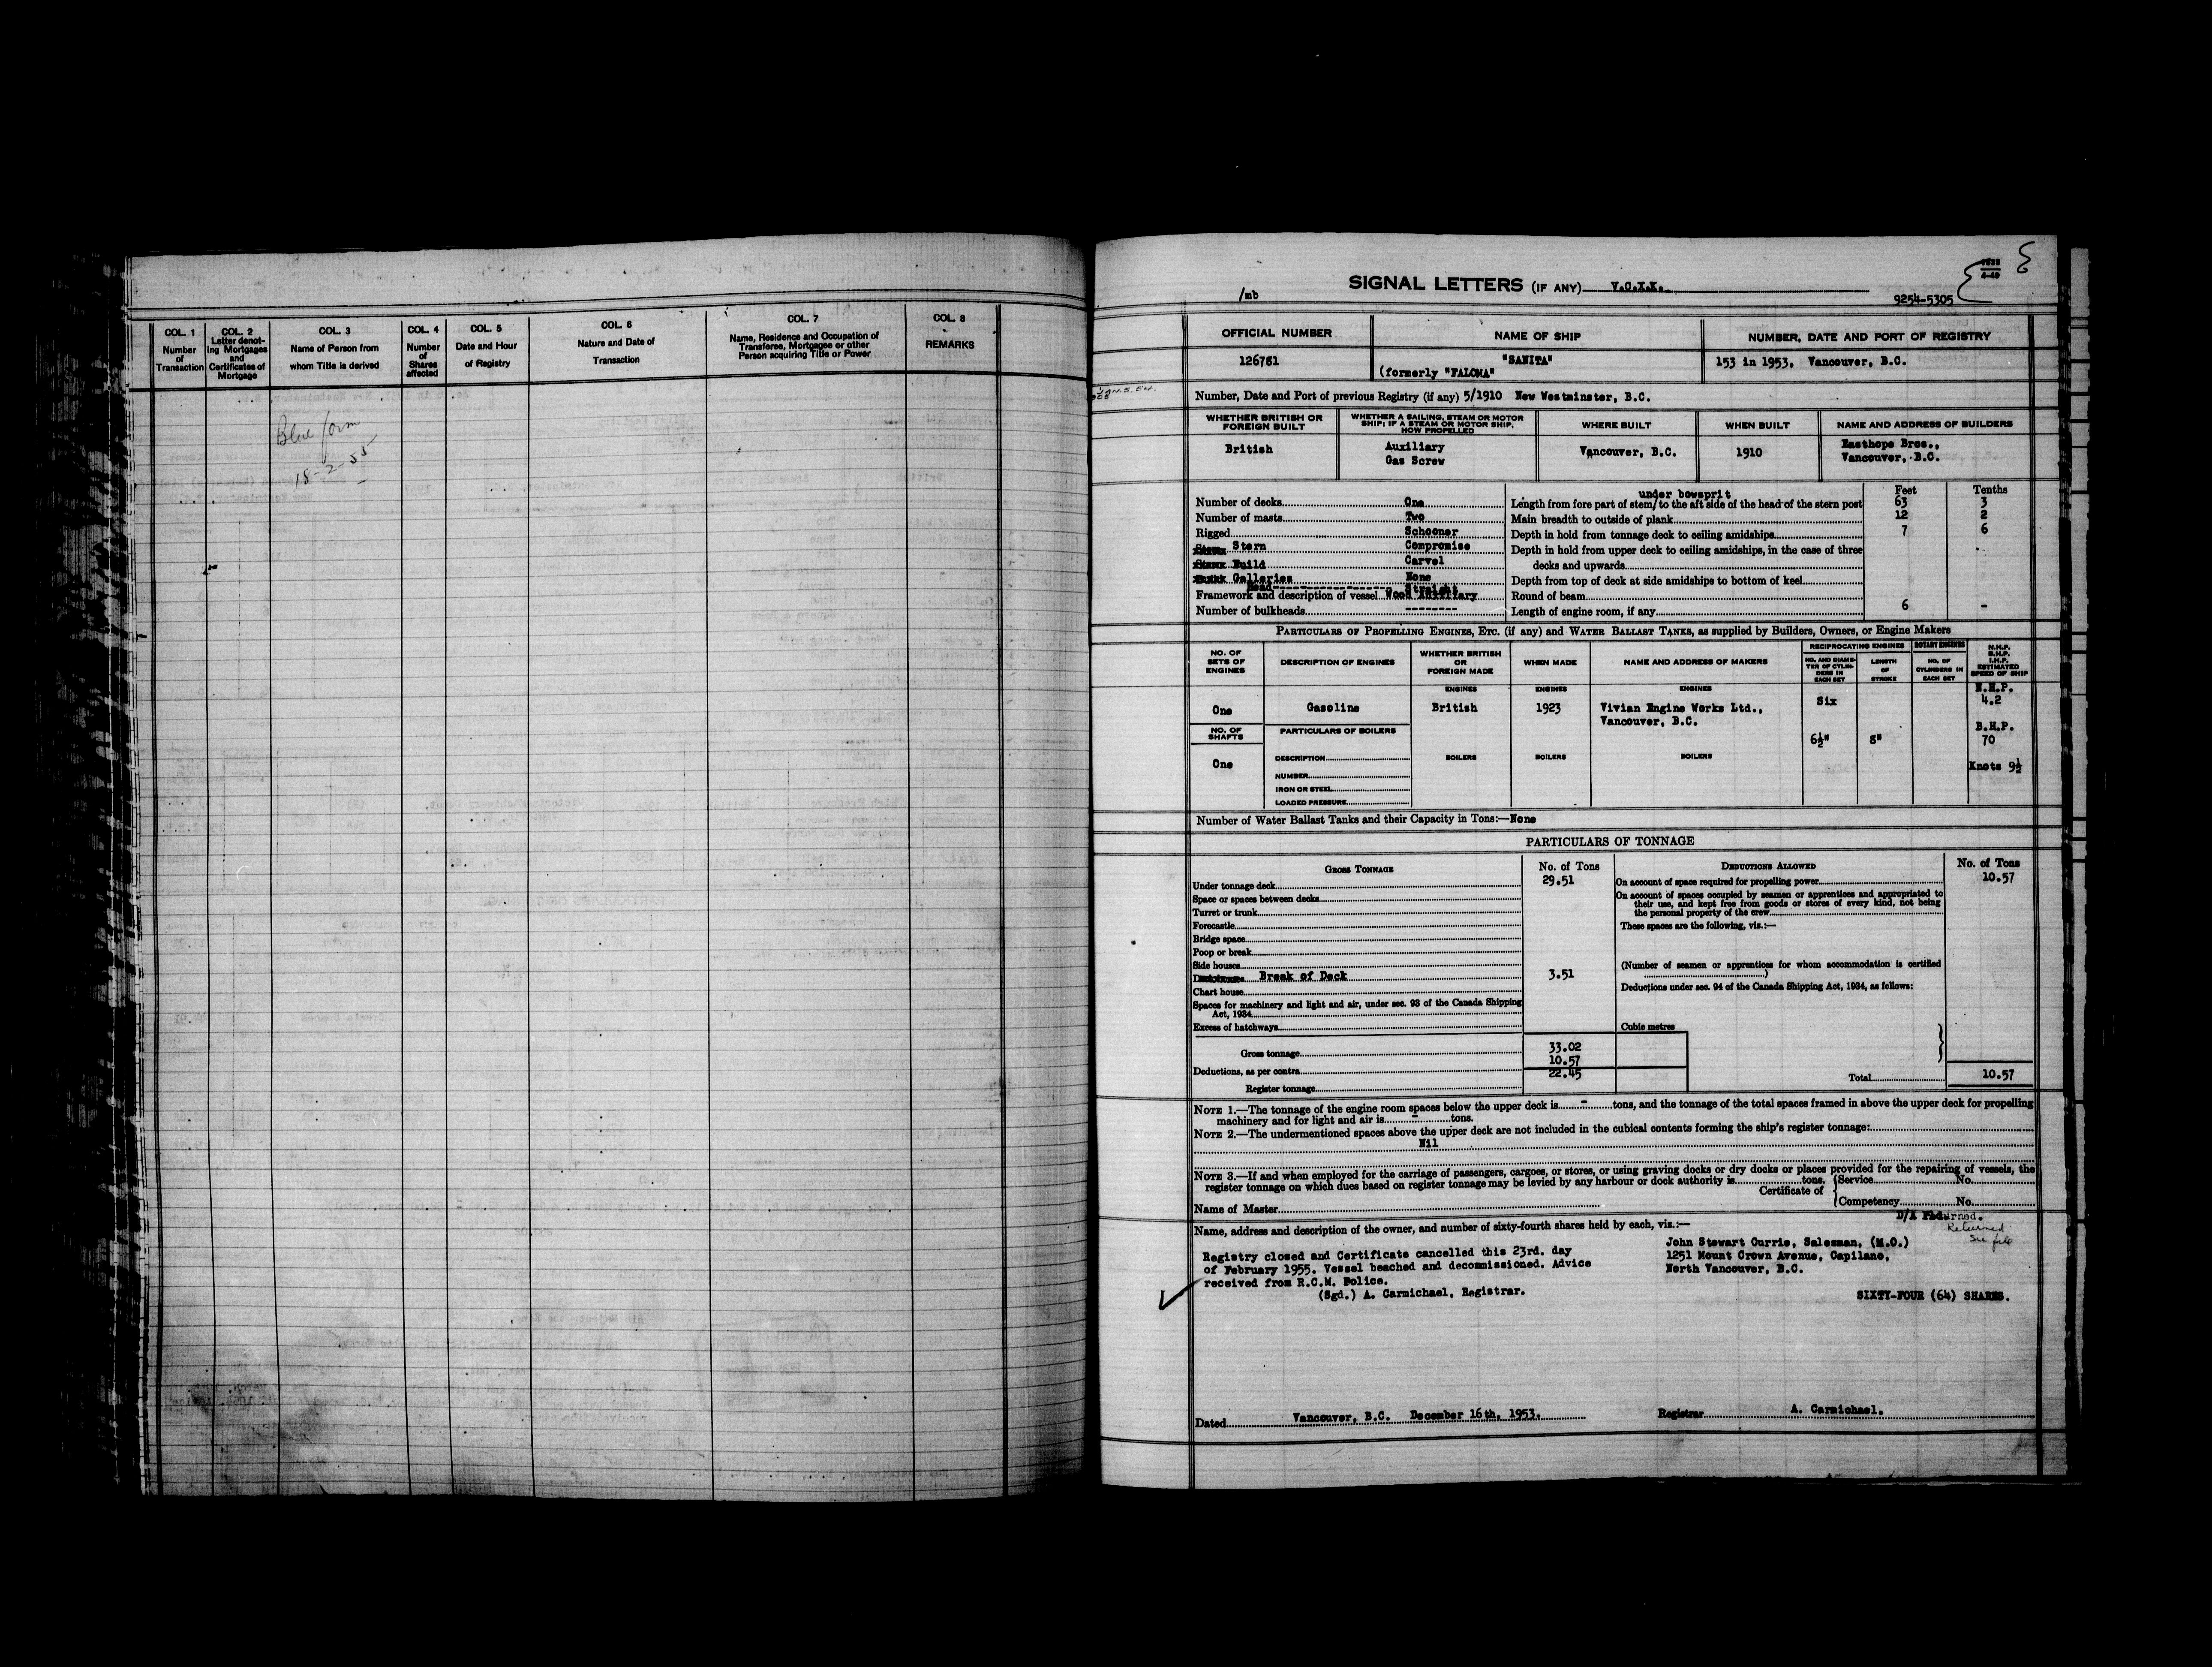 COL. 1
Number
of
Transaction
COL. 2
Letter denot-
ing Mortgages
and
Certificates of
Mortgage
COL. 3
Name of Person from
whom Title is derived
COL. 4
Number
of
Shares
affected
COL. 5
Date and Hour
of Registry
COL. 6
Nature and Date of
Transaction
COL. 7
Name, Residence and Occupation of
Transferee, Mortgagee or other
Person acquiring Title or Power
COL. 8
REMARKS
Blue form
18-2-55
SIGNAL LETTERS (IF ANY) V.C.X.K.
/mb
9254-5305
OFFICIAL NUMBER
NAME OF SHIP
NUMBER, DATE AND PORT OF REGISTRY
126781
"SANITA"
(formerly "PALOMA"
153 in 1953, Vancouver, B.C.
Number, Date and Port of previous Registry (if any) 5/1910 New Westminster, B.C.
WHETHER BRITISH OR
FOREIGN BUILT
WHETHER A SAILING, STEAM OR MOTOR
SHIP; IF A STEAM OR MOTOR SHIP,
HOW PROPELLED
WHERE BUILT
WHEN BUILT
NAME AND ADDRESS OF BUILDERS
British
Auxiliary
Gas Screw
Vancouver, B.C.
1910
Easthope Bros.,
Vancouver, B.C.
Number of decks One
Number of masts Two
Rigged Schooner
Stern Compromise
Build Carvel
Galleries None
Head Straight
Framework and description of vessel Wood
Number of bulkheads --------
Feet Tenths
under bowsprit
Length from fore part of stem/to the aft side of the head of the stern post 63 3
Main breadth to outside of plank 12 2
Depth in hold from tonnage deck to ceiling amidships 7 6
Depth in hold from upper deck to ceiling amidships, in the case of three
decks and upwards
Depth from top of deck at side amidships to bottom of keel
Round of beam
Length of engine room, if any 6 -
PARTICULARS OF PROPELLING ENGINES, ETC. (if any) and WATER BALLAST TANKS, as supplied by Builders, Owners, or Engine Makers
NO. OF
SETS OF
ENGINES
DESCRIPTION OF ENGINES
WHETHER BRITISH
OR
FOREIGN MADE
WHEN MADE
NAME AND ADDRESS OF MAKERS
RECIPROCATING ENGINES
NO. AND DIAME-
TER OF CYLIN-
DERS IN
EACH SET
LENGTH
OF
STROKE
ROTARY ENGINES
NO. OF
CYLINDERS IN
EACH SET
N.H.P.
B.H.P.
I.H.P.
ESTIMATED
SPEED OF SHIP
ENGINES
ENGINES
ENGINES
One
Gasoline
British
1923
Vivian Engine Works Ltd.,
Vancouver, B.C.
Six
6½"
8"
N.H.P.
4.2
B.H.P.
70
Knots 9½
NO. OF
SHAFTS
One
PARTICULARS OF BOILERS
DESCRIPTION
NUMBER
IRON OR STEEL
LOADED PRESSURE
BOILERS
BOILERS
BOILERS
Number of Water Ballast Tanks and their Capacity in Tons:—None
PARTICULARS OF TONNAGE
GROSS TONNAGE
No. of Tons
Under tonnage deck 29.51
Space or spaces between decks
Turret or trunk
Forecastle
Bridge space
Poop or break
Side houses
Break of Deck 3.51
Chart house
Spaces for machinery and light and air, under sec. 93 of the Canada Shipping
Act, 1934
Excess of hatchways
Gross tonnage 33.02
Deductions, as per contra 10.57
Register tonnage 22.45
Cubic metres
DEDUCTIONS ALLOWED
No. of Tons
On account of space required for propelling power 10.57
On account of spaces occupied by seamen or apprentices and appropriated to
their use, and kept free from goods or stores of every kind, not being
the personal property of the crew
These spaces are the following, viz.:—
(Number of seamen or apprentices for whom accommodation is certified
)
Deductions under sec. 94 of the Canada Shipping Act, 1934, as follows:
Total 10.57
NOTE 1.—The tonnage of the engine room spaces below the upper deck is - tons, and the tonnage of the total spaces framed in above the upper deck for propelling
machinery and for light and air is - tons.
NOTE 2.—The undermentioned spaces above the upper deck are not included in the cubical contents forming the ship's register tonnage:
Nil
NOTE 3.—If and when employed for the carriage of passengers, cargoes, or stores, or using graving docks or dry docks or places provided for the repairing of vessels, the
register tonnage on which dues based on register tonnage may be levied by any harbour or dock authority is tons.
Certificate of { Service No.
Competency No.
Name of Master
Name, address and description of the owner, and number of sixty-fourth shares held by each, viz.:—
D/A
Returned
See file
Registry closed and Certificate cancelled this 23rd. day
of February 1955. Vessel beached and decommissioned. Advice
received from R.C.M. Police.
(Sgd.) A. Carmichael, Registrar.
John Stewart Currie, Salesman, (M.O.)
1251 Mount Crown Avenue, Capilano,
North Vancouver, B.C.
SIXTY-FOUR (64) SHARES.
Dated Vancouver, B.C. December 16th, 1953.
Registrar A. Carmichael.